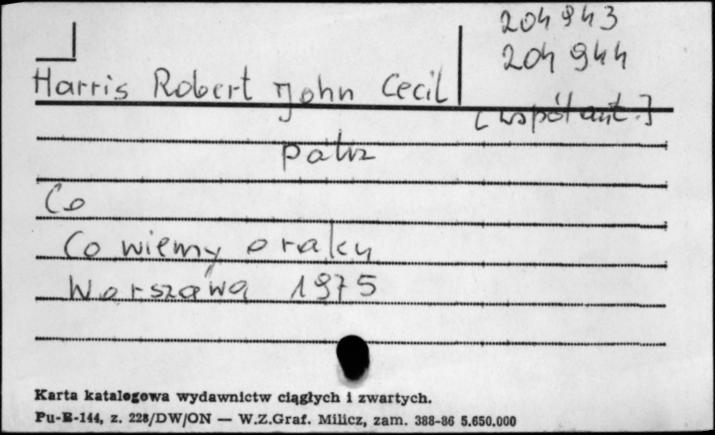 204943
204944
Harris Robert John Cecil
[współaut.]
patrz
Co
Co wiemy o raku
Warszawa 1975
Karta katalogowa wydawnictw ciągłych i zwartych.
Pu-B-144, z. 228/DW/ON — W.Z.Graf. Milicz, zam. 388-86 5.650.000